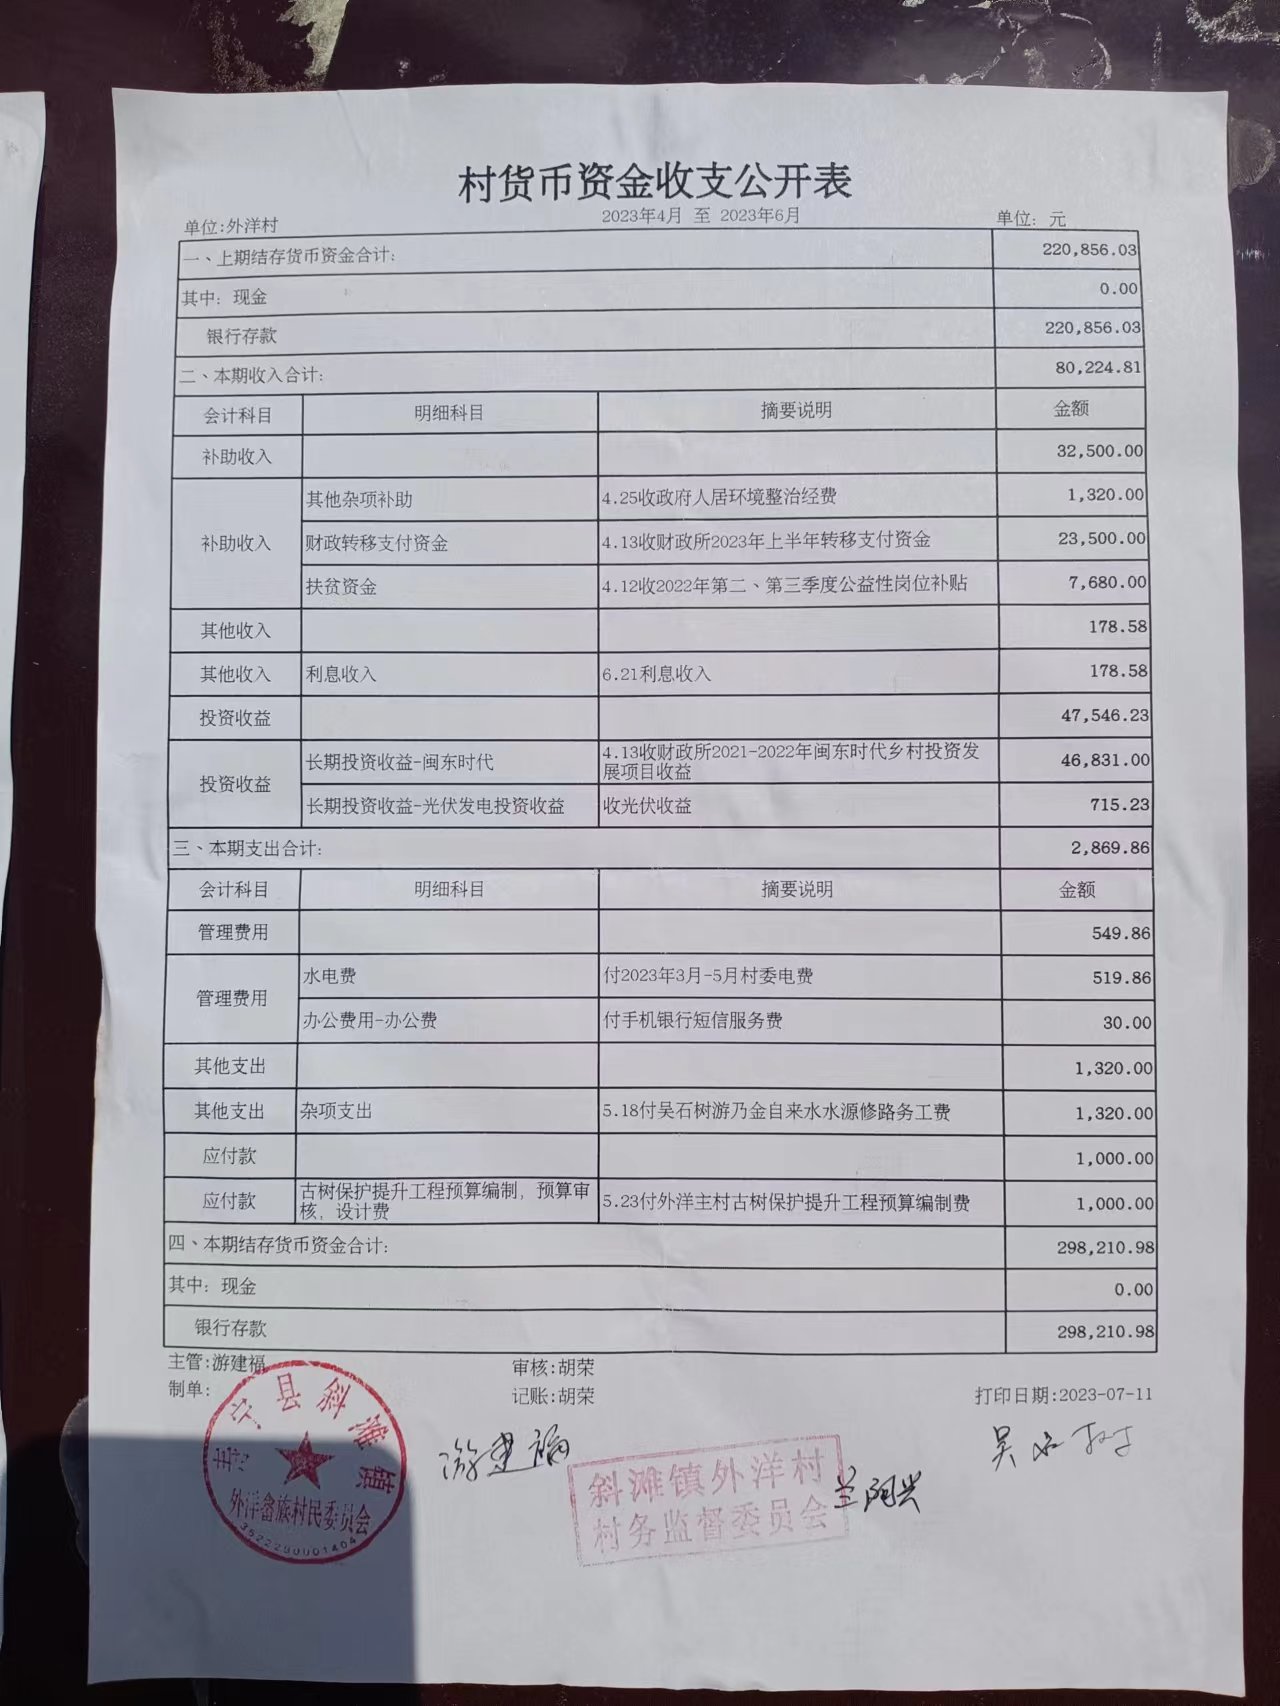 村货币资金收支公开表
2023年4月 至 2023年6月
单位:外洋村 单位: 元
一、上期结存货币资金合计: 220,856.03
其中: 现金 0.00
银行存款 220,856.03
二、本期收入合计: 80,224.81
会计科目 明细科目 摘要说明 金额
补助收入 32,500.00
补助收入 其他杂项补助 4.25收政府人居环境整治经费 1,320.00
财政转移支付资金 4.13收财政所2023年上半年转移支付资金 23,500.00
扶贫资金 4.12收2022年第二、第三季度公益性岗位补贴 7,680.00
其他收入 178.58
其他收入 利息收入 6.21利息收入 178.58
投资收益 47,546.23
投资收益 长期投资收益-闽东时代 4.13收财政所2021-2022年闽东时代乡村投资发
展项目收益 46,831.00
长期投资收益-光伏发电投资收益 收光伏收益 715.23
三、本期支出合计: 2,869.86
会计科目 明细科目 摘要说明 金额
管理费用 549.86
管理费用 水电费 付2023年3月-5月村委电费 519.86
办公费用-办公费 付手机银行短信服务费 30.00
其他支出 1,320.00
其他支出 杂项支出 5.18付吴石树游乃金自来水水源修路务工费 1,320.00
应付款 1,000.00
应付款 古树保护提升工程预算编制, 预算审
核, 设计费 5.23付外洋主村古树保护提升工程预算编制费 1,000.00
四、本期结存货币资金合计: 298,210.98
其中: 现金 0.00
银行存款 298,210.98
主管:游建福 审核:胡荣
制单: 记账:胡荣 打印日期:2023-07-11
寿宁县斜滩镇
外洋畲族村民委员会
游建福
斜滩镇外洋村
村务监督委员会